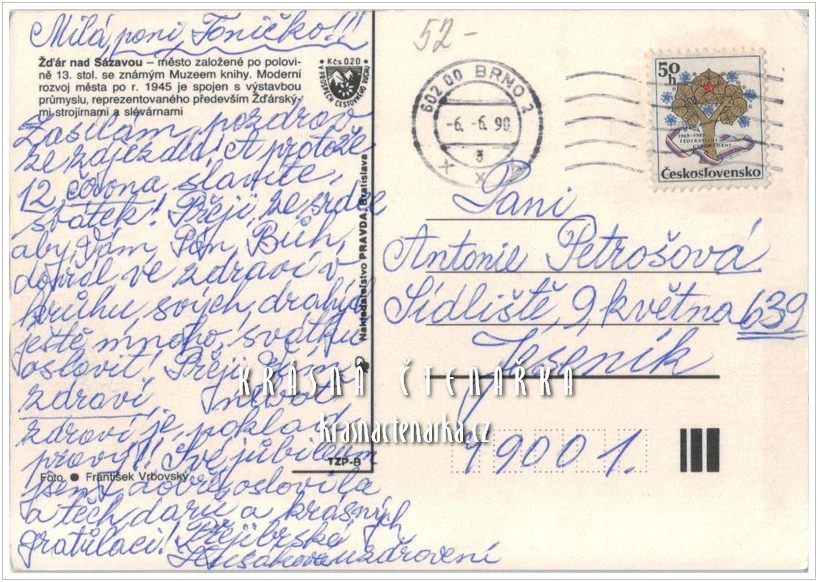 Milá paní Toničko!!
Žďár nad Sázavou – město založené po polovi-
ně 13. stol. se známým Muzeem knihy. Moderní
rozvoj města po r. 1945 je spojen s výstavbou
průmyslu, reprezentovaného především Žďárský-
mi strojírnami a slévárnami
Kčs 0,20
VE PROSPĚCH CESTOVNÍHO RUCHU
Zasílám, pozdrav
ze zájezdu! A protože
12 června, slavíte,
svátek! Přeji, ze srdce
aby, Vám, Pán, Bůh,
dopřál ve zdraví v
kruhu, svých, drahých
ještě mnoho, svátků
oslovit! Přeji,
zdraví.
zdraví je, poklad
pravý!! jubileum
jsem dobře oslovila
a těch, darů a krásných
gratulací! Přeji
Nakladatelství PRAVDA, Bratislava
TZP-B
Foto ● František Vrbovský
52-
602 00 BRNO 2
-6. -6. 90.
50
h
1969-1989
FEDERATIVNÍ
USPOŘÁDÁNÍ
Československo
Paní
Antonie Petrošová
Sídliště, 9, května 639
Jeseník
79001.
KRÁSNÁ ČTENÁŘKA
krasnactenarka.cz